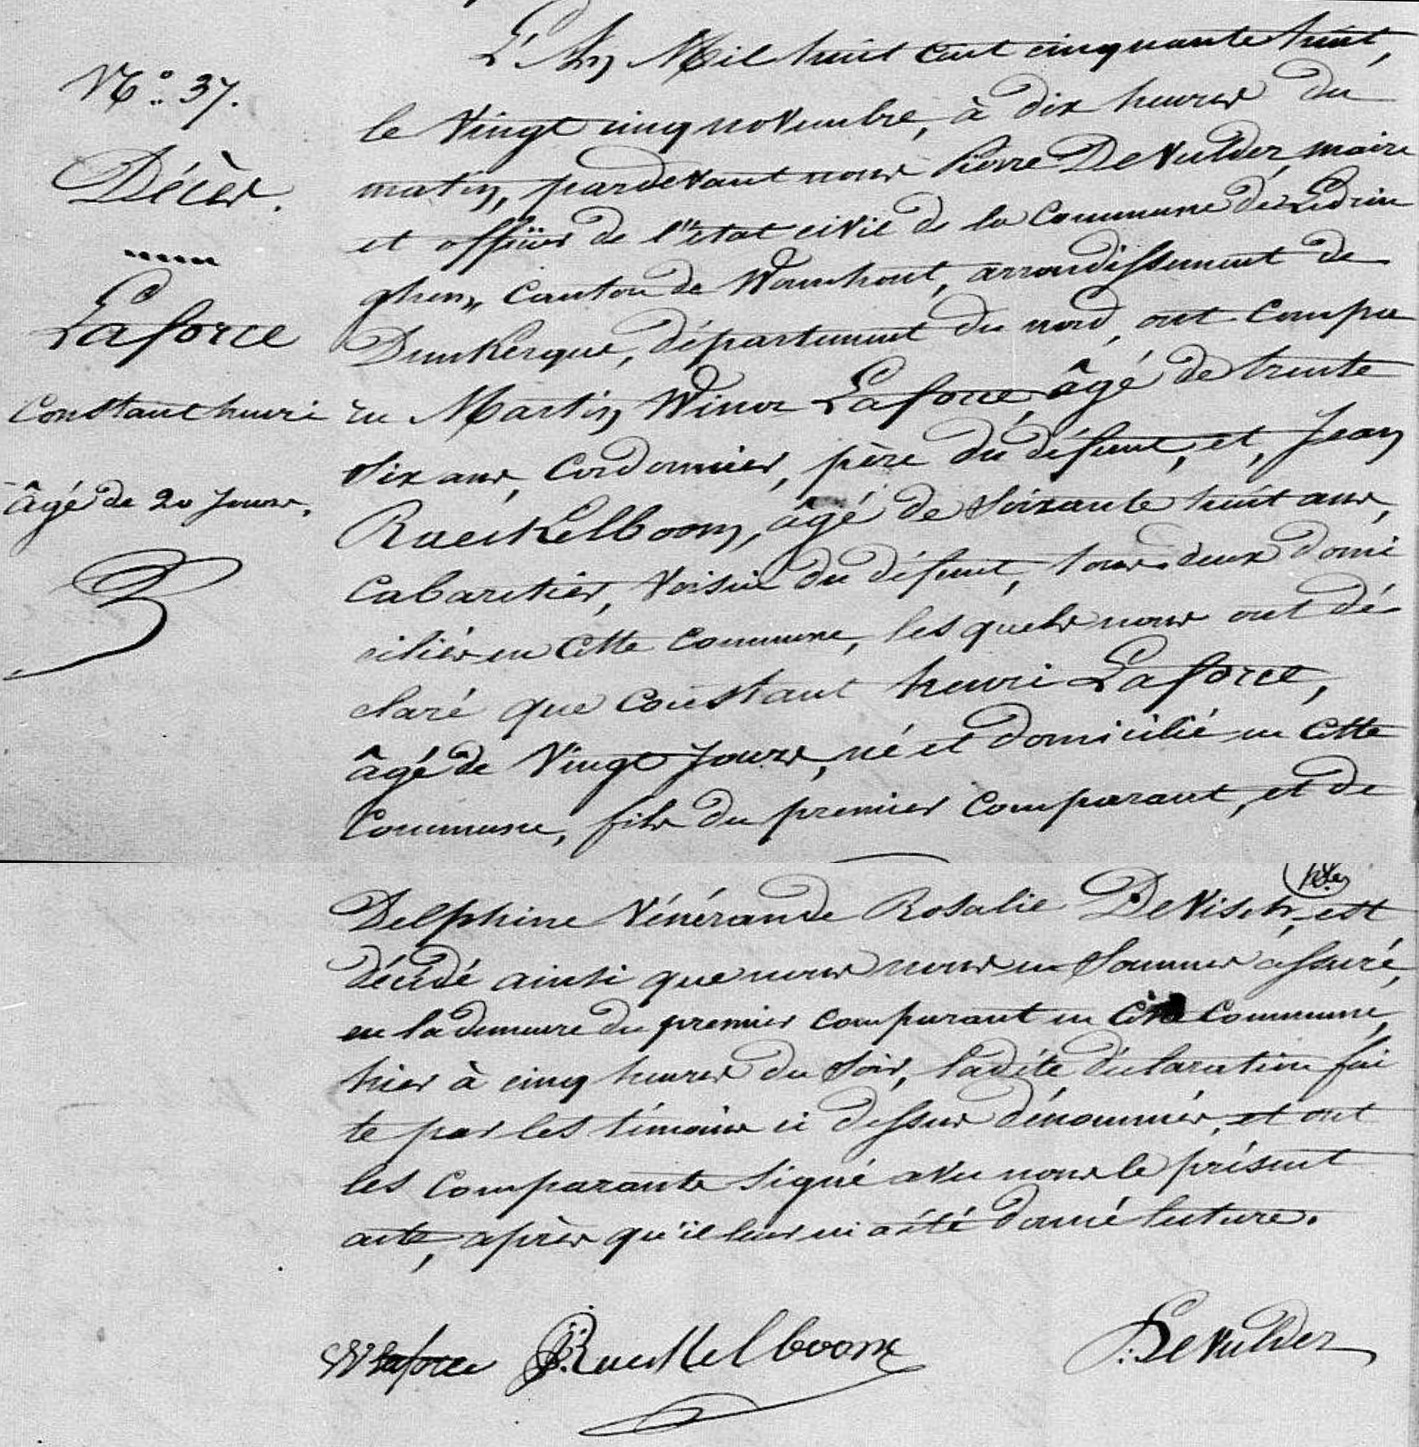 N.o 37.
Décès.
Laforce
Constant henri
âgé de 20 Jours.
L'An Mil huit cent cinquante huit,
le Vingt cinq novembre, à dix heures du
matin, pardevant nous Pierre DeVulder, maire
et officier de l'état civil de la Commune de Ledrin
ghem, Canton de Wormhout, arrondissement de
Dunkerque, département du nord, ont compa
ru Martin Winoc Laforce, âgé de trente
Six ans, Cordonnier, père du défunt, et, Jean
RuecKelboom, âgé de Soixante huit ans,
Cabaretier, Voisin du défunt, tous deux domi
ciliés en Cette Commune, les quels nous ont dé
claré que Constant henri Laforce,
âgé de Vingt Jours, né et domicilié en Cette
Commune, fils du premier Comparant, et de
Delphine Vénérande Rosalie DeVisch, est
décédé ainsi que nous nous en Sommes assuré,
en la demeure du premier comparant en Cette Commune,
hier à cinq heures du Soir, ladite déclaration fai
te par les témoins ci dessus dénommés, et ont
les Comparants Signé avec nous le présent
acte, après qu'il leur en a été donné lecture.
Laforce RuecKelboom DeVulder